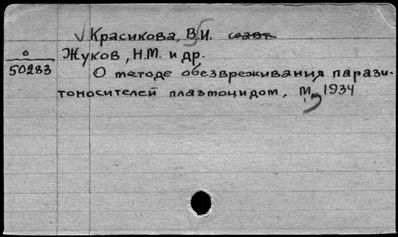 Красикова, В.И. соавт.
о
50283
Жуков, Н.М. и др.
О методе обезвреживания парази-
тоносителей плавтоцидом, М., 1934